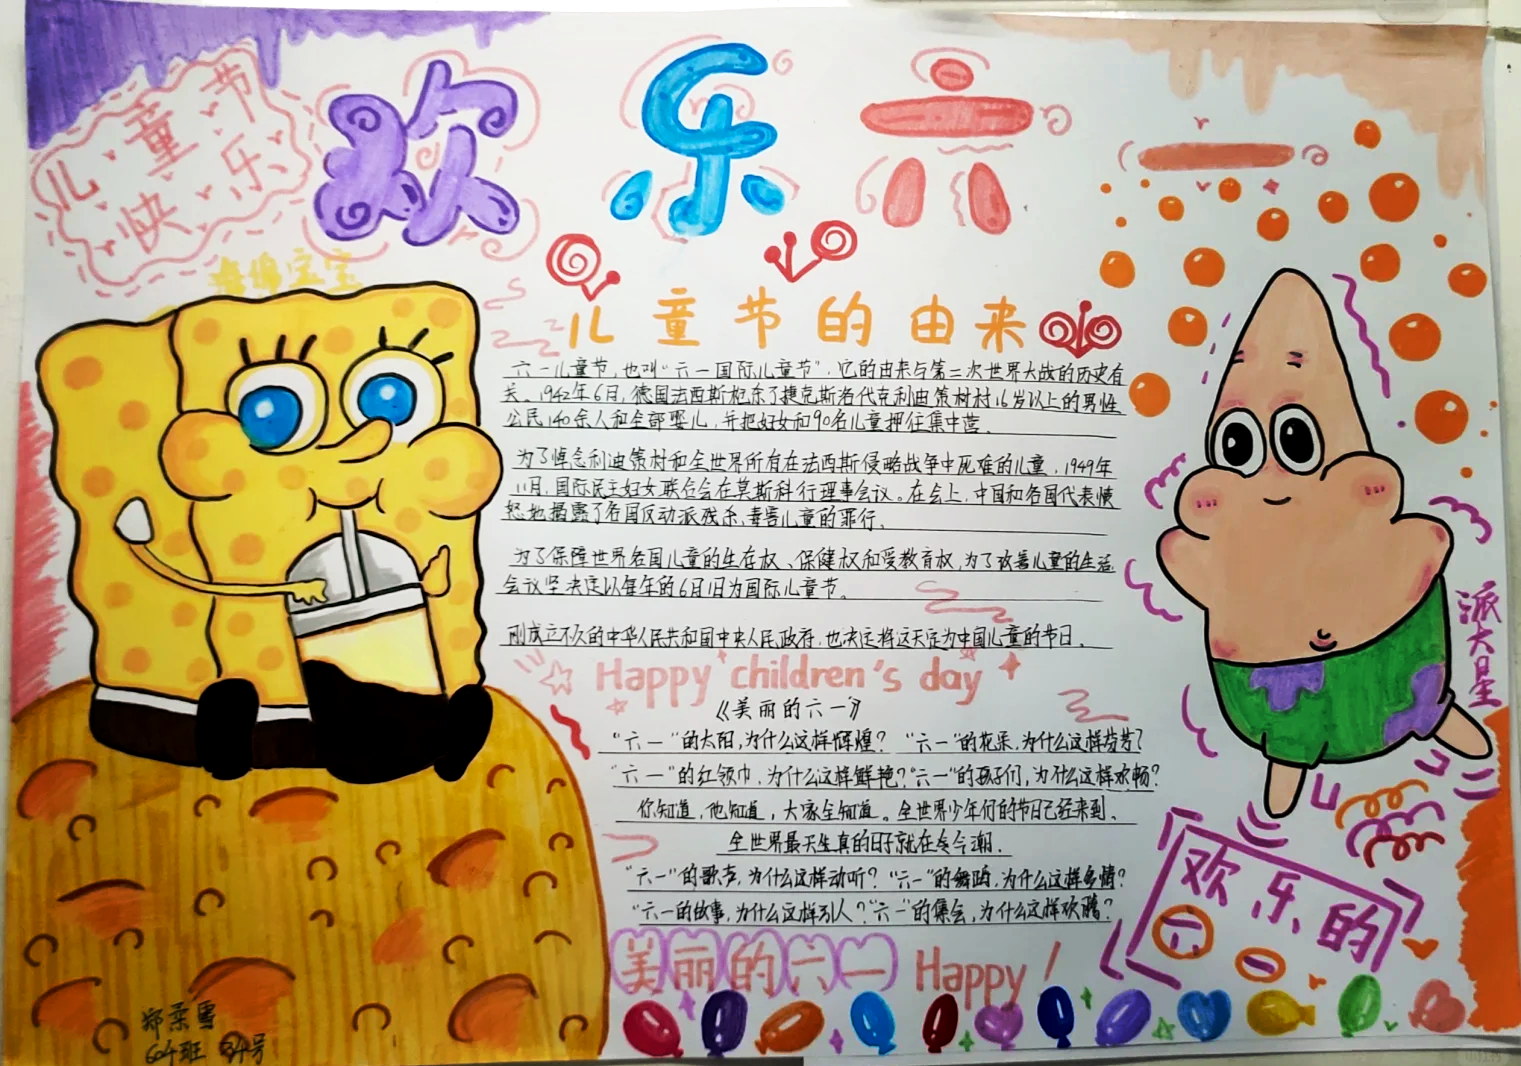 欢乐六一
儿童节
快乐
海绵宝宝
儿童节的由来
六一儿童节，也叫“六一国际儿童节”，它的由来与第二次世界大战的历史有
关。1942年6月，德国法西斯枪杀了捷克斯洛伐克利迪策村村16岁以上的男性
公民140余人和全部婴儿，并把妇女和90名儿童押往集中营。
为了悼念利迪策村和全世界所有在法西斯侵略战争中死难的儿童，1949年
11月，国际民主妇女联合会在莫斯科行理事会议。在会上，中国和各国代表愤
怒地揭露了各国反动派残杀，毒害儿童的罪行。
为了保障世界各国儿童的生存权、保健权和受教育权，为了改善儿童的生活
会议坚决定以每年的6月1日为国际儿童节。
刚成立不久的中华人民共和国中央人民政府，也决定将这天定为中国儿童的节日。
Happy children's day
《美丽的六一》
“六一”的太阳，为什么这样辉煌？“六一”的花朵，为什么这样芬芳？
“六一”的红领巾，为什么这样鲜艳？“六一”的孩子们，为什么这样欢畅？
你知道，他知道，大家全知道。全世界少年们的节日已经来到。
全世界最天生真的日子就在今潮.
“六一”的歌声，为什么这样动听？“六一”的舞蹈，为什么这样多情？
“六一的故事，为什么这样引人？“六一”的集会，为什么这样欢腾？
美丽的六一 Happy!
派大星
欢乐的
六一
郑柔雪
604班 34号